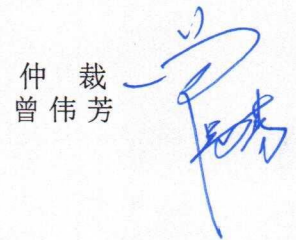 仲裁
曾伟芳